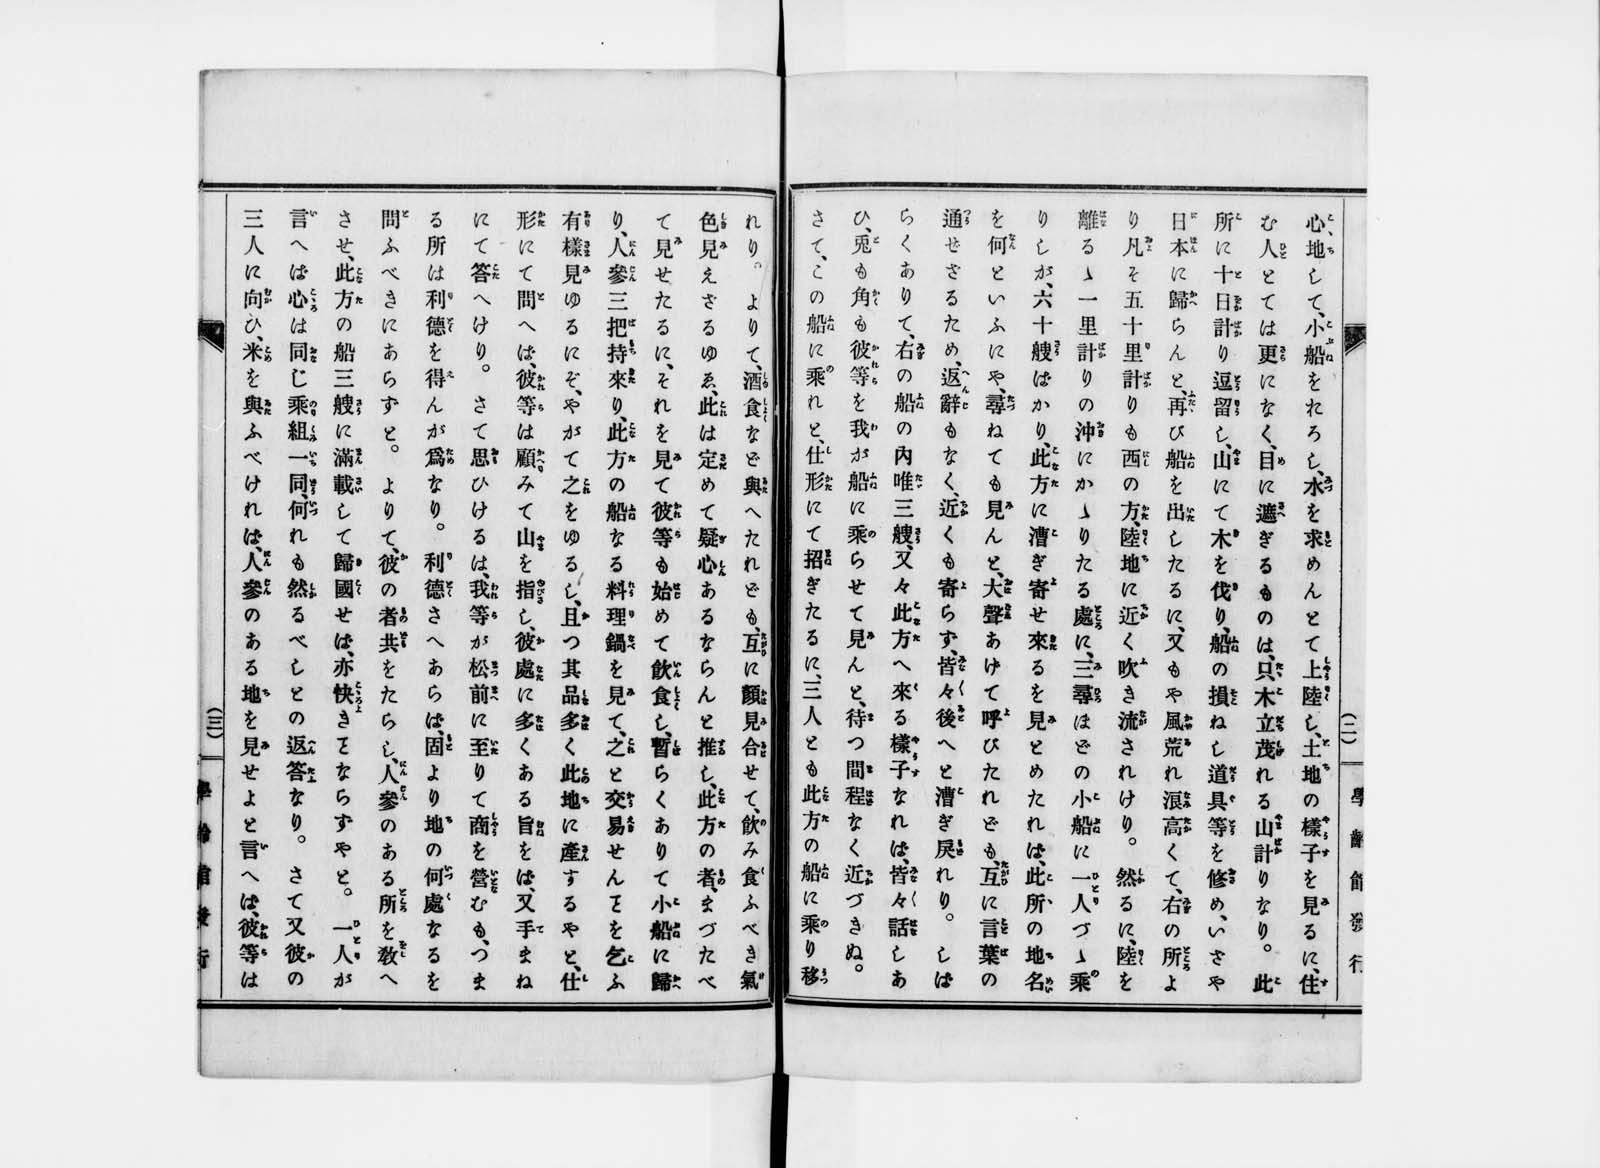 心地して、小船をれろし、水を求めんとて上陸し、土地の樣子を見るに、住
む人とては更になく、目に遮ぎるものは、只、木立茂れる山計りなり。此
所に十日計り逗留し、山にて木を伐り、船の損ねし道具等を修め、いさや
日本に歸らんと、再び船を出したるに、又もや風荒れ浪高くて、右の所よ
り凡そ五十里計りも西の方、陸地に近く吹き流されけり。然るに、陸を
離るゝ一里計りの沖にかゝりたる處に、三尋ほどの小船に一人づゝ乘
りしが、六十艘ばかり、此方に漕ぎ寄せ來るを見とめたれば、此所の地名
を何といふにや、尋ねても見んと、大聲あげて呼びたれども、互に言葉の
通せざるため、返辭もなく、近くも寄らず、皆々後へと漕ぎ戻れり。しば
らくありて、右の船の內唯三艘、又々此方へ來る樣子なれば、皆々話しあ
ひ、兎も角も彼等を我が船に乘らせて見んと、待つ間程なく近づきぬ。
さて、この船に乘れと、仕形にて招ぎたるに、三人とも此方の船に乘り移
(二)
學齡館發行
れり。よりて、酒食など與へたれども、互に顏見合せて、飮み食ふべき氣
色見えざるゆゑ、此は定めて疑心あるならんと推し、此方の者、まづたべ
て見せたるに、それを見て彼等も始めて飮食し、暫らくありて小船に歸
り、人參三把持來り、此方の船なる料理鍋を見て、之と交易せんヿを乞ふ
有樣見ゆるにぞ、やがて之をゆるし、且つ其品多く此地に產するやと、仕
形にて問へば、彼等は顧みて山を指し、彼處に多くある旨をば、又手まね
にて答へけり。さて思ひけるは、我等が松前に至りて商を營むも、つま
る所は利德を得んが爲なり。利德さへあらば、固より地の何處なるを
問ふべきにあらずと。よりて、彼の者共をたらし、人參のある所を敎へ
させ、此方の船三艘に滿載して歸國せば、亦快きヿならずやと。一人が
言へば心は同じ乘組一同、何れも然るべしとの返答なり。さて又彼の
三人に向ひ、米を與ふべければ、人參のある地を見せよと言へば、彼等は
(三)
學齡館發行